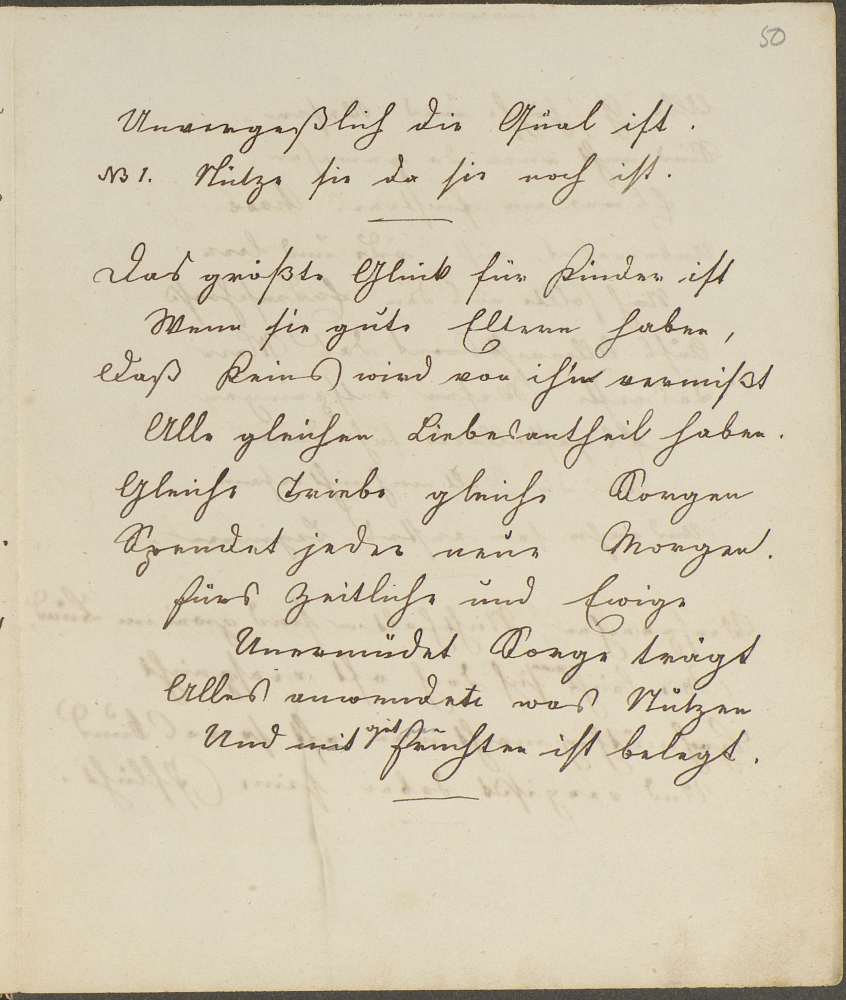 50
Unvergeßlich die Qual ist.
NB 1. Nütze sie da sie noch ist.
Das größte Glück für Kinder ist
Wenn sie gute Eltern haben,
Daß Keins wird von ih'n vermißt
Alle gleichen Liebesantheil haben.
Gleiche Triebe gleiche Sorgen
Spendet jeder neue Morgen.
Fürs Zeitliche und Ewige
Unermüdet Sorge trägt
Alles anwendete was Nützen
Und mit Früchten ist belegt.